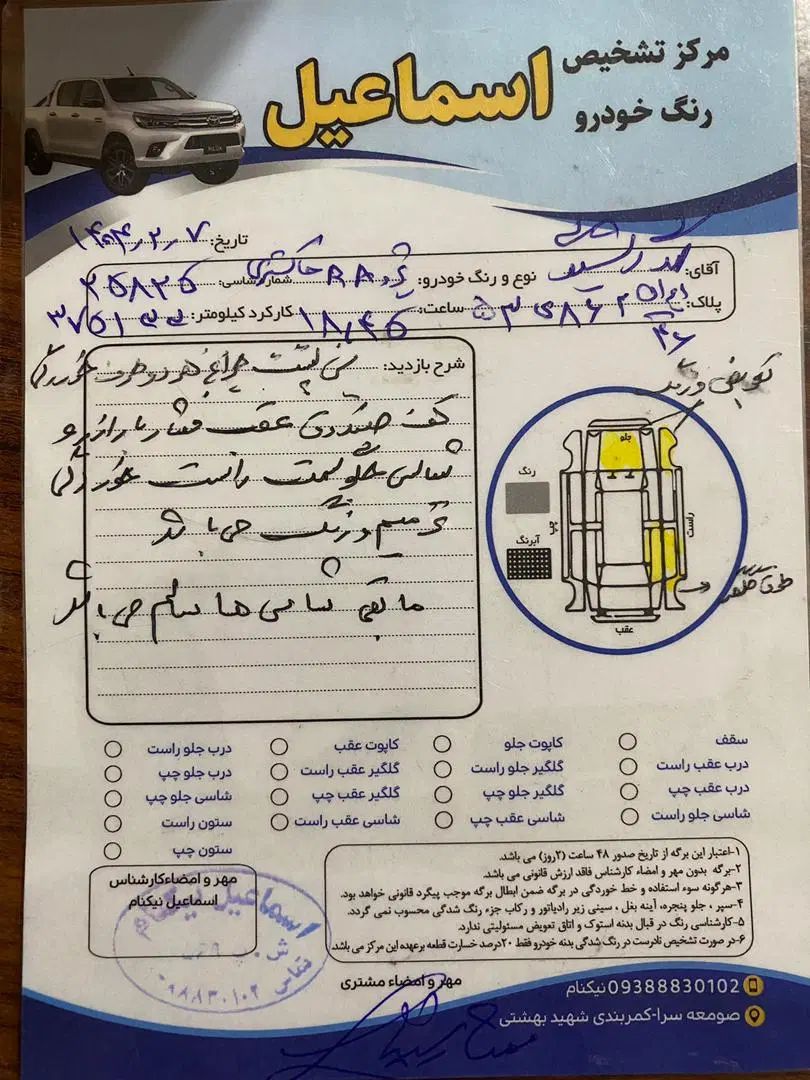 مرکز تشخیص
رنگ خودرو
اسماعیل
تاریخ: ۱۴۰۴٫۲٫۷
آقای: نوع و رنگ خودرو: پژو خاکستری شماره شاسی:
پلاک: ایران ۴۶ ساعت: ۱۸٫۴۵ کارکرد کیلومتر:
شرح بازدید: سی پشت چراغ هر دو طرف خوردگی
کف صندوق عقب فشار
شاسی جلو سمت راست خوردگی
ترمیم و رنگ می باشد
مابقی شاسی ها سالم می باشد
تعویض و رنگ
جلو
رنگ
آبرنگ
چپ
راست
عقب
سقف
کاپوت جلو
کاپوت عقب
درب جلو راست
درب عقب راست
گلگیر جلو راست
گلگیر عقب راست
درب جلو چپ
درب عقب چپ
گلگیر جلو چپ
گلگیر عقب چپ
شاسی جلو چپ
شاسی جلو راست
شاسی عقب چپ
شاسی عقب راست
ستون راست
ستون چپ
۱-اعتبار این برگه از تاریخ صدور ۴۸ ساعت (۲روز) می باشد.
۲-برگه بدون مهر و امضاء کارشناس فاقد ارزش قانونی می باشد.
۳-هرگونه سوء استفاده و خط خوردگی در برگه ضمن ابطال برگه موجب پیگرد قانونی خواهد بود.
۴-سپر ، جلو پنجره، آینه بغل ، سینی زیر رادیاتور و رکاب جزء رنگ شدگی محسوب نمی گردد.
۵-کارشناسی رنگ در قبال بدنه استوک و اتاق تعویض مسئولیتی ندارد.
۶-در صورت تشخیص نادرست در رنگ شدگی بدنه خودرو فقط ۲۰درصد خسارت قطعه برعهده این مرکز می باشد.
مهر و امضاءکارشناس
اسماعیل نیکنام
اسماعیل نیکنام
مهر و امضاء مشتری
09388830102 نیکنام
صومعه سرا-کمربندی شهید بهشتی